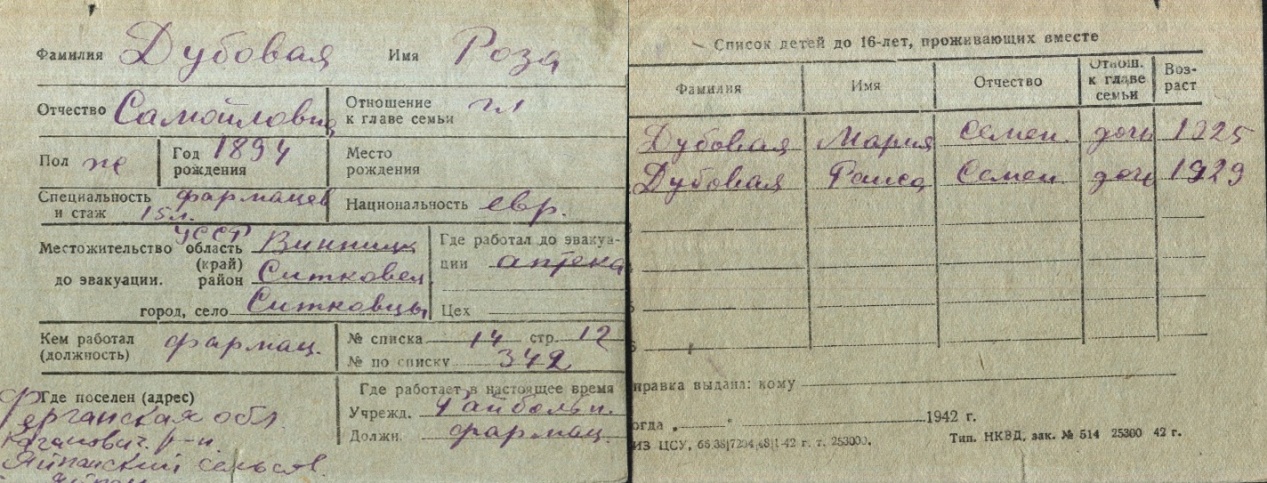 Фамилия Дубовая Имя Роза
Отчество Самойловна Отношение к главе семьи гл
Пол же Год рождения 1894 Место рождения
Специальность и стаж фармацев 15 л. Национальность евр.
Местожительство до эвакуации. УССР область (край) Винницк
район Ситковец
город, село Ситковцы
Где работал до эвакуации аптека
Цех
Кем работал (должность) фармац. № списка 14 стр. 12
№ по списку 342
Где поселен (адрес)
Ферганская обл.
Каганович. р-н
Яйпанский сельсов.
Где работает в настоящее время
Учрежд. Райбольн.
Должн. фармац.
Список детей до 16-лет, проживающих вместе
Фамилия Имя Отчество Отнош. к главе семьи Возраст
Дубовая Мария Семен. дочь 1925
Дубовая Раиса Семен. дочь 1929
правка выдана: кому
огда „ “ 1942 г.
ИЗ ЦСУ, Тип. НКВД, зак. № 514 25300 42 г.